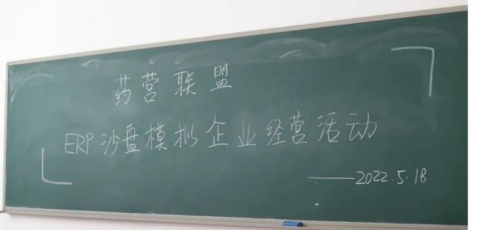 药营联盟
ERP沙盘模拟企业经营活动
——2022.5.18